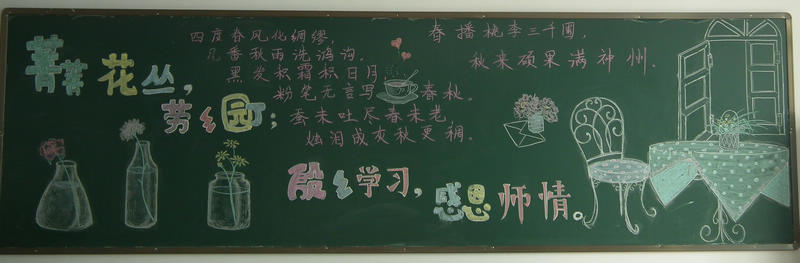 四度春风化绸缪,
几番秋雨洗鸿沟.
黑发积霜积日月
粉笔无言写春秋.
蚕未吐尽春未老
烛泪成灰秋更稠.
春播桃李三千圃,
秋来硕果满神州.
菁菁花丛,
芳乡园;
殷乡学习,
感恩师情。